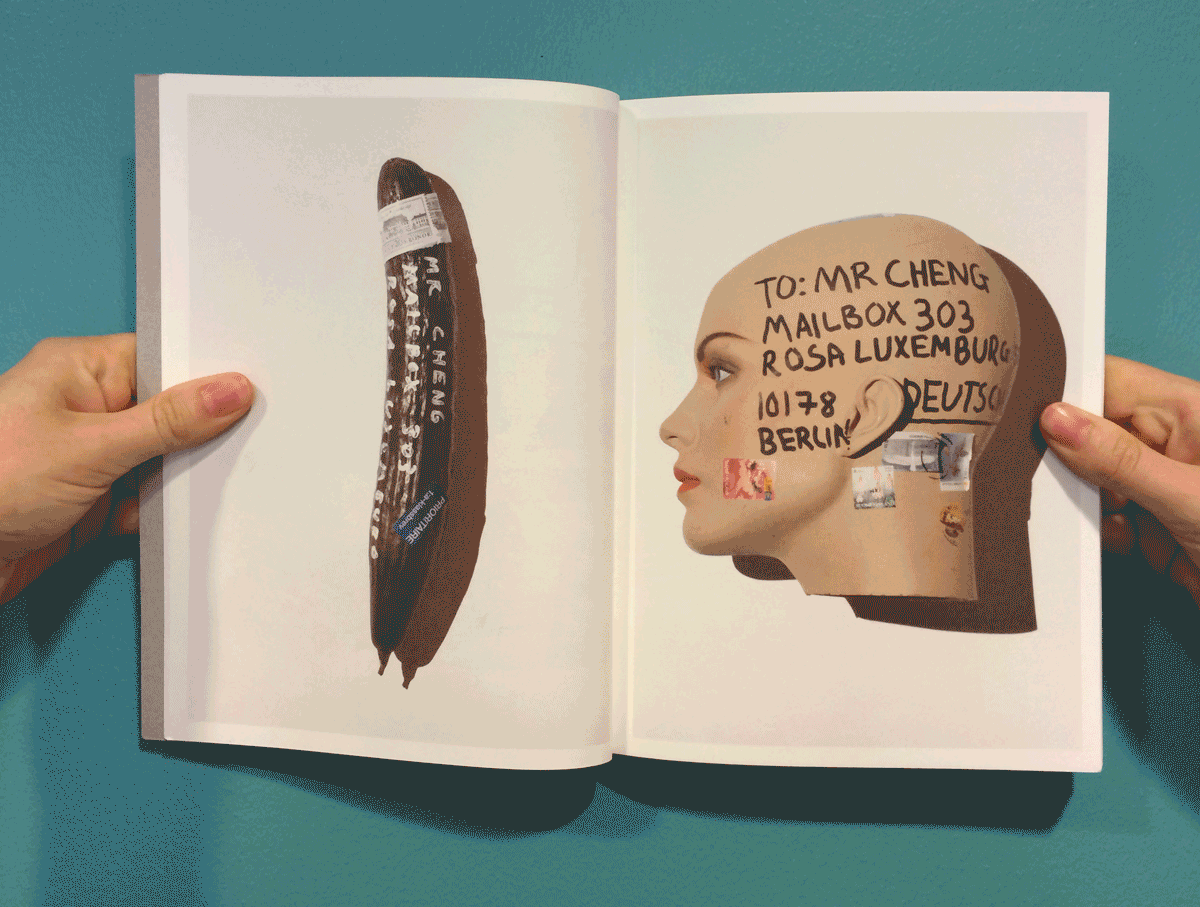 MR CHENG
MAILBOX 303
ROSA LUXEMBURG
PRIORITAIRE
TO: MR CHENG
MAILBOX 303
ROSA LUXEMBURG
10178
DEUTSC
BERLIN